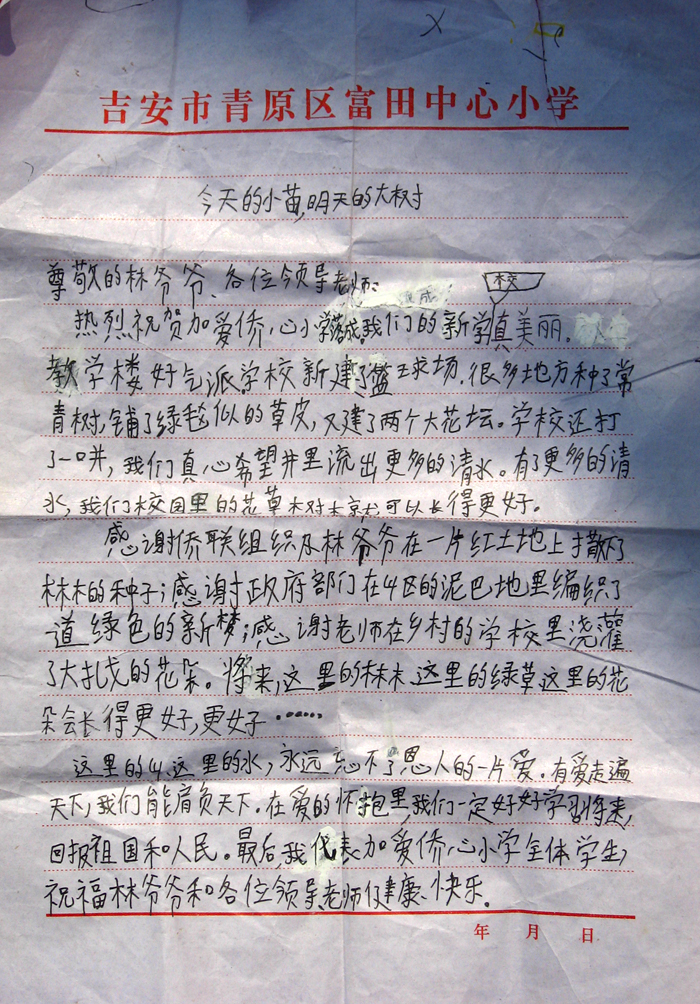 吉安市青原区富田中心小学
今天的小苗,明天的大树
尊敬的林爷爷、各位领导老师:
热烈祝贺加爱侨心小学落成。我们的新学校真美丽。
教学楼好气派,学校新建了篮球场.很多地方种了常
青树,铺了绿毯似的草皮,又建了两个大花坛。学校还打
了一口井,我们真心希望井里流出更多的清水。有了更多的清
水,我们校园里的花草木对木就可以长得更好。
感谢侨联组织及林爷爷在一片红土地上撒下了
林木的种子;感谢政府部门在山区的泥巴地里编织了
道绿色的新梦;感谢老师在乡村的学校里浇灌
了大扎成的花朵。将来,这里的林木这里的绿草这里的花
朵会长得更好,更好……
这里的山,这里的水,永远忘不了恩人的一片爱。有爱走遍
天下,我们能肩负天下。在爱的怀抱里,我们一定好好学习将来,
回报祖国和人民。最后,我代表加爱侨心小学全体学生,
祝福林爷爷和各位领导老师健康、快乐。
年 月 日